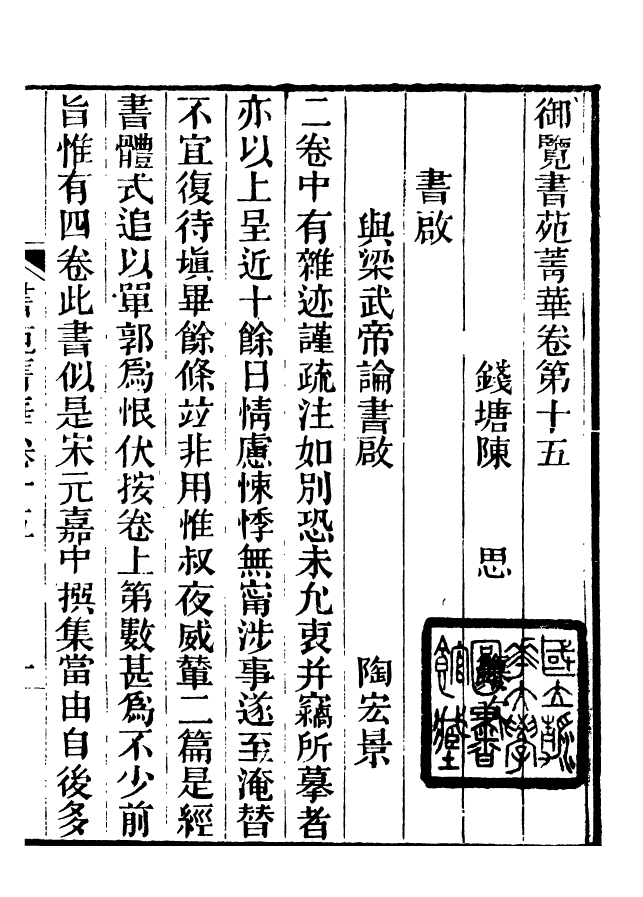 御覽書苑菁華卷第十五
錢塘陳思
書啟
與梁武帝論書啟 陶宏景
二卷中有雜迹謹疏注如別恐未允衷并竊所摹者
亦以上呈近十餘日情慮悚悸無甯涉事遂至淹替
不宜復待塡畢餘條竝非用惟叔夜威輦二篇是經
書體式追以單郭爲恨伏按卷上第數甚爲不少前
旨惟有四卷此書似是宋元嘉中撰集當由自後多
書苑菁華卷十五 一
國立浙江大學圖書館藏